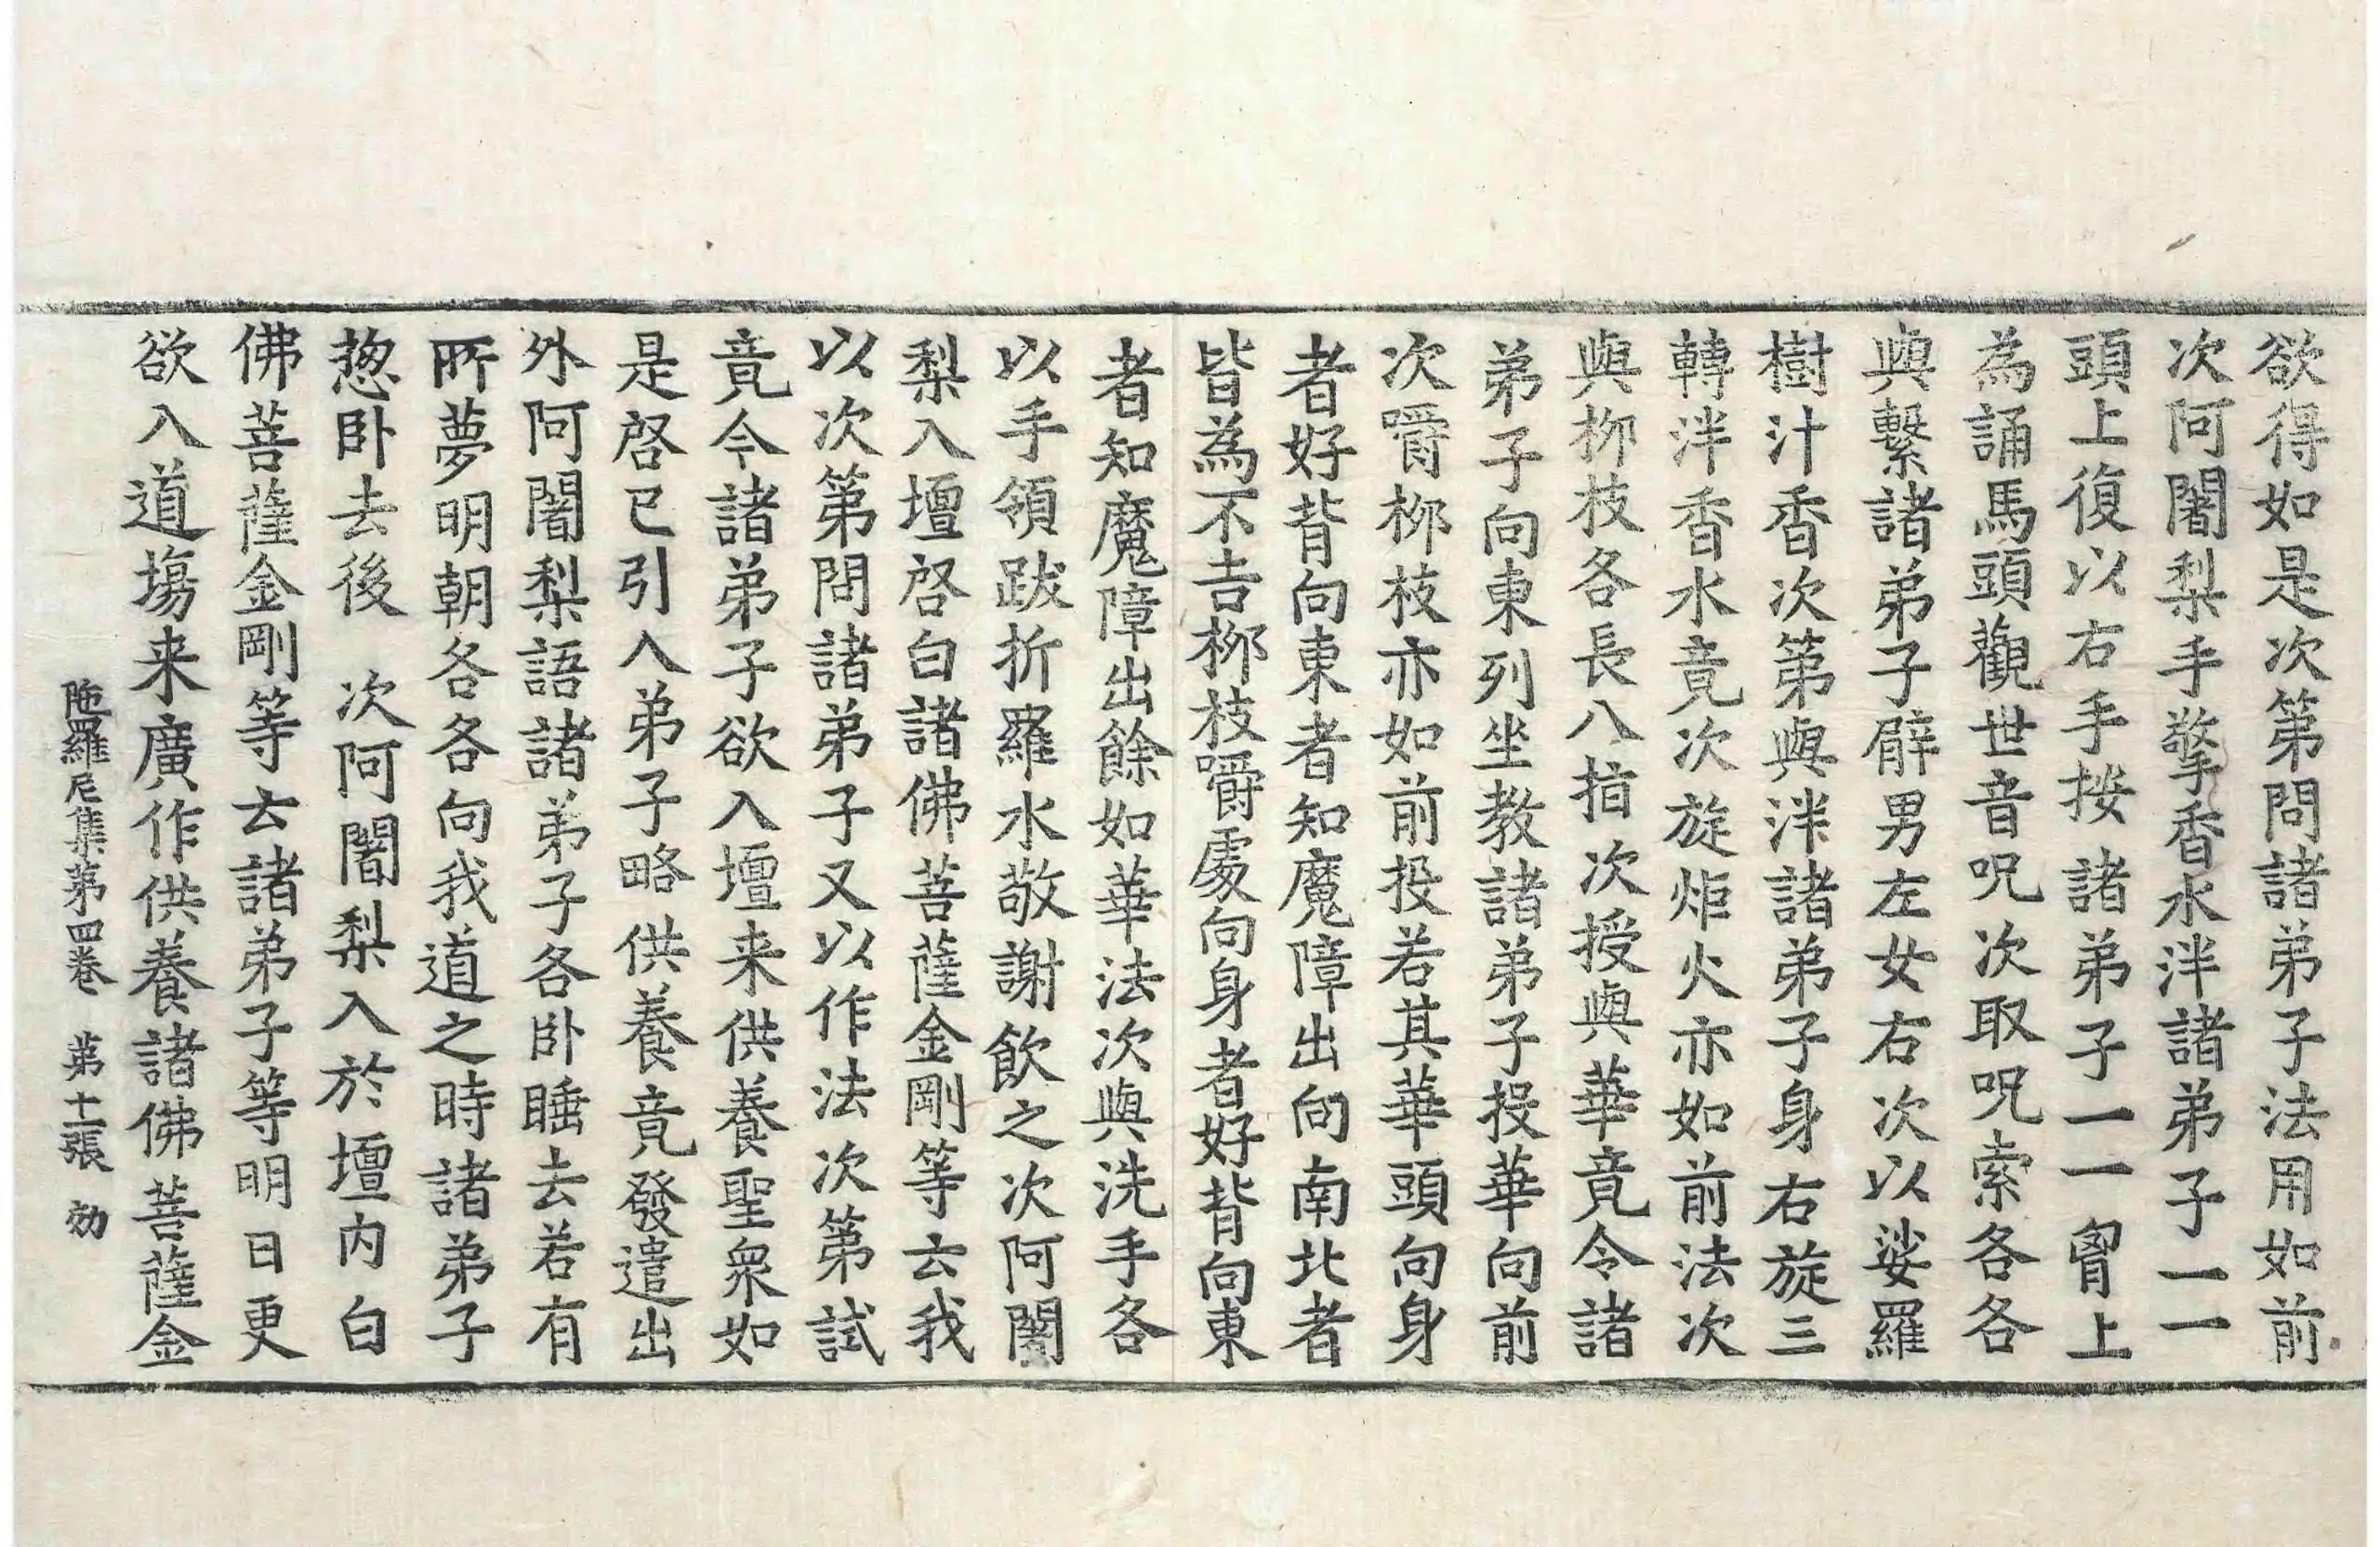 欲得如是次第問諸弟子法用如前
次阿闍梨手擎香水泮諸弟子一一
頭上復以右手按諸弟子一一胷上
為誦馬頭觀世音呪次取呪索各各
與繫諸弟子臂男左女右次以娑羅
樹汁香次第與泮諸弟子身右旋三
轉泮香水竟次旋炬火亦如前法次
與栁枝各長八指次授與華竟令諸
弟子向東列坐教諸弟子投華向前
次嚼栁枝亦如前投若其華頭向身
者好背向東者知魔障出向南北者
皆為不吉栁枝嚼處向身者好背向東
者知魔障出餘如華法次與洗手各
以手領跋折羅水敬謝飲之次阿闍
梨入壇啓白諸佛菩薩金剛等云我
以次第問諸弟子又以作法次第試
竟令諸弟子欲入壇来供養聖衆如
是啓已引入弟子略供養竟發遣出
外阿闍梨語諸弟子各卧睡去若有
所夢明朝各各向我道之時諸弟子
惣卧去後 次阿闍梨入於壇内白
佛菩薩金剛等云諸弟子等明日更
欲入道場来廣作供養諸佛菩薩金
陁羅尼集第四卷 第十二張 効